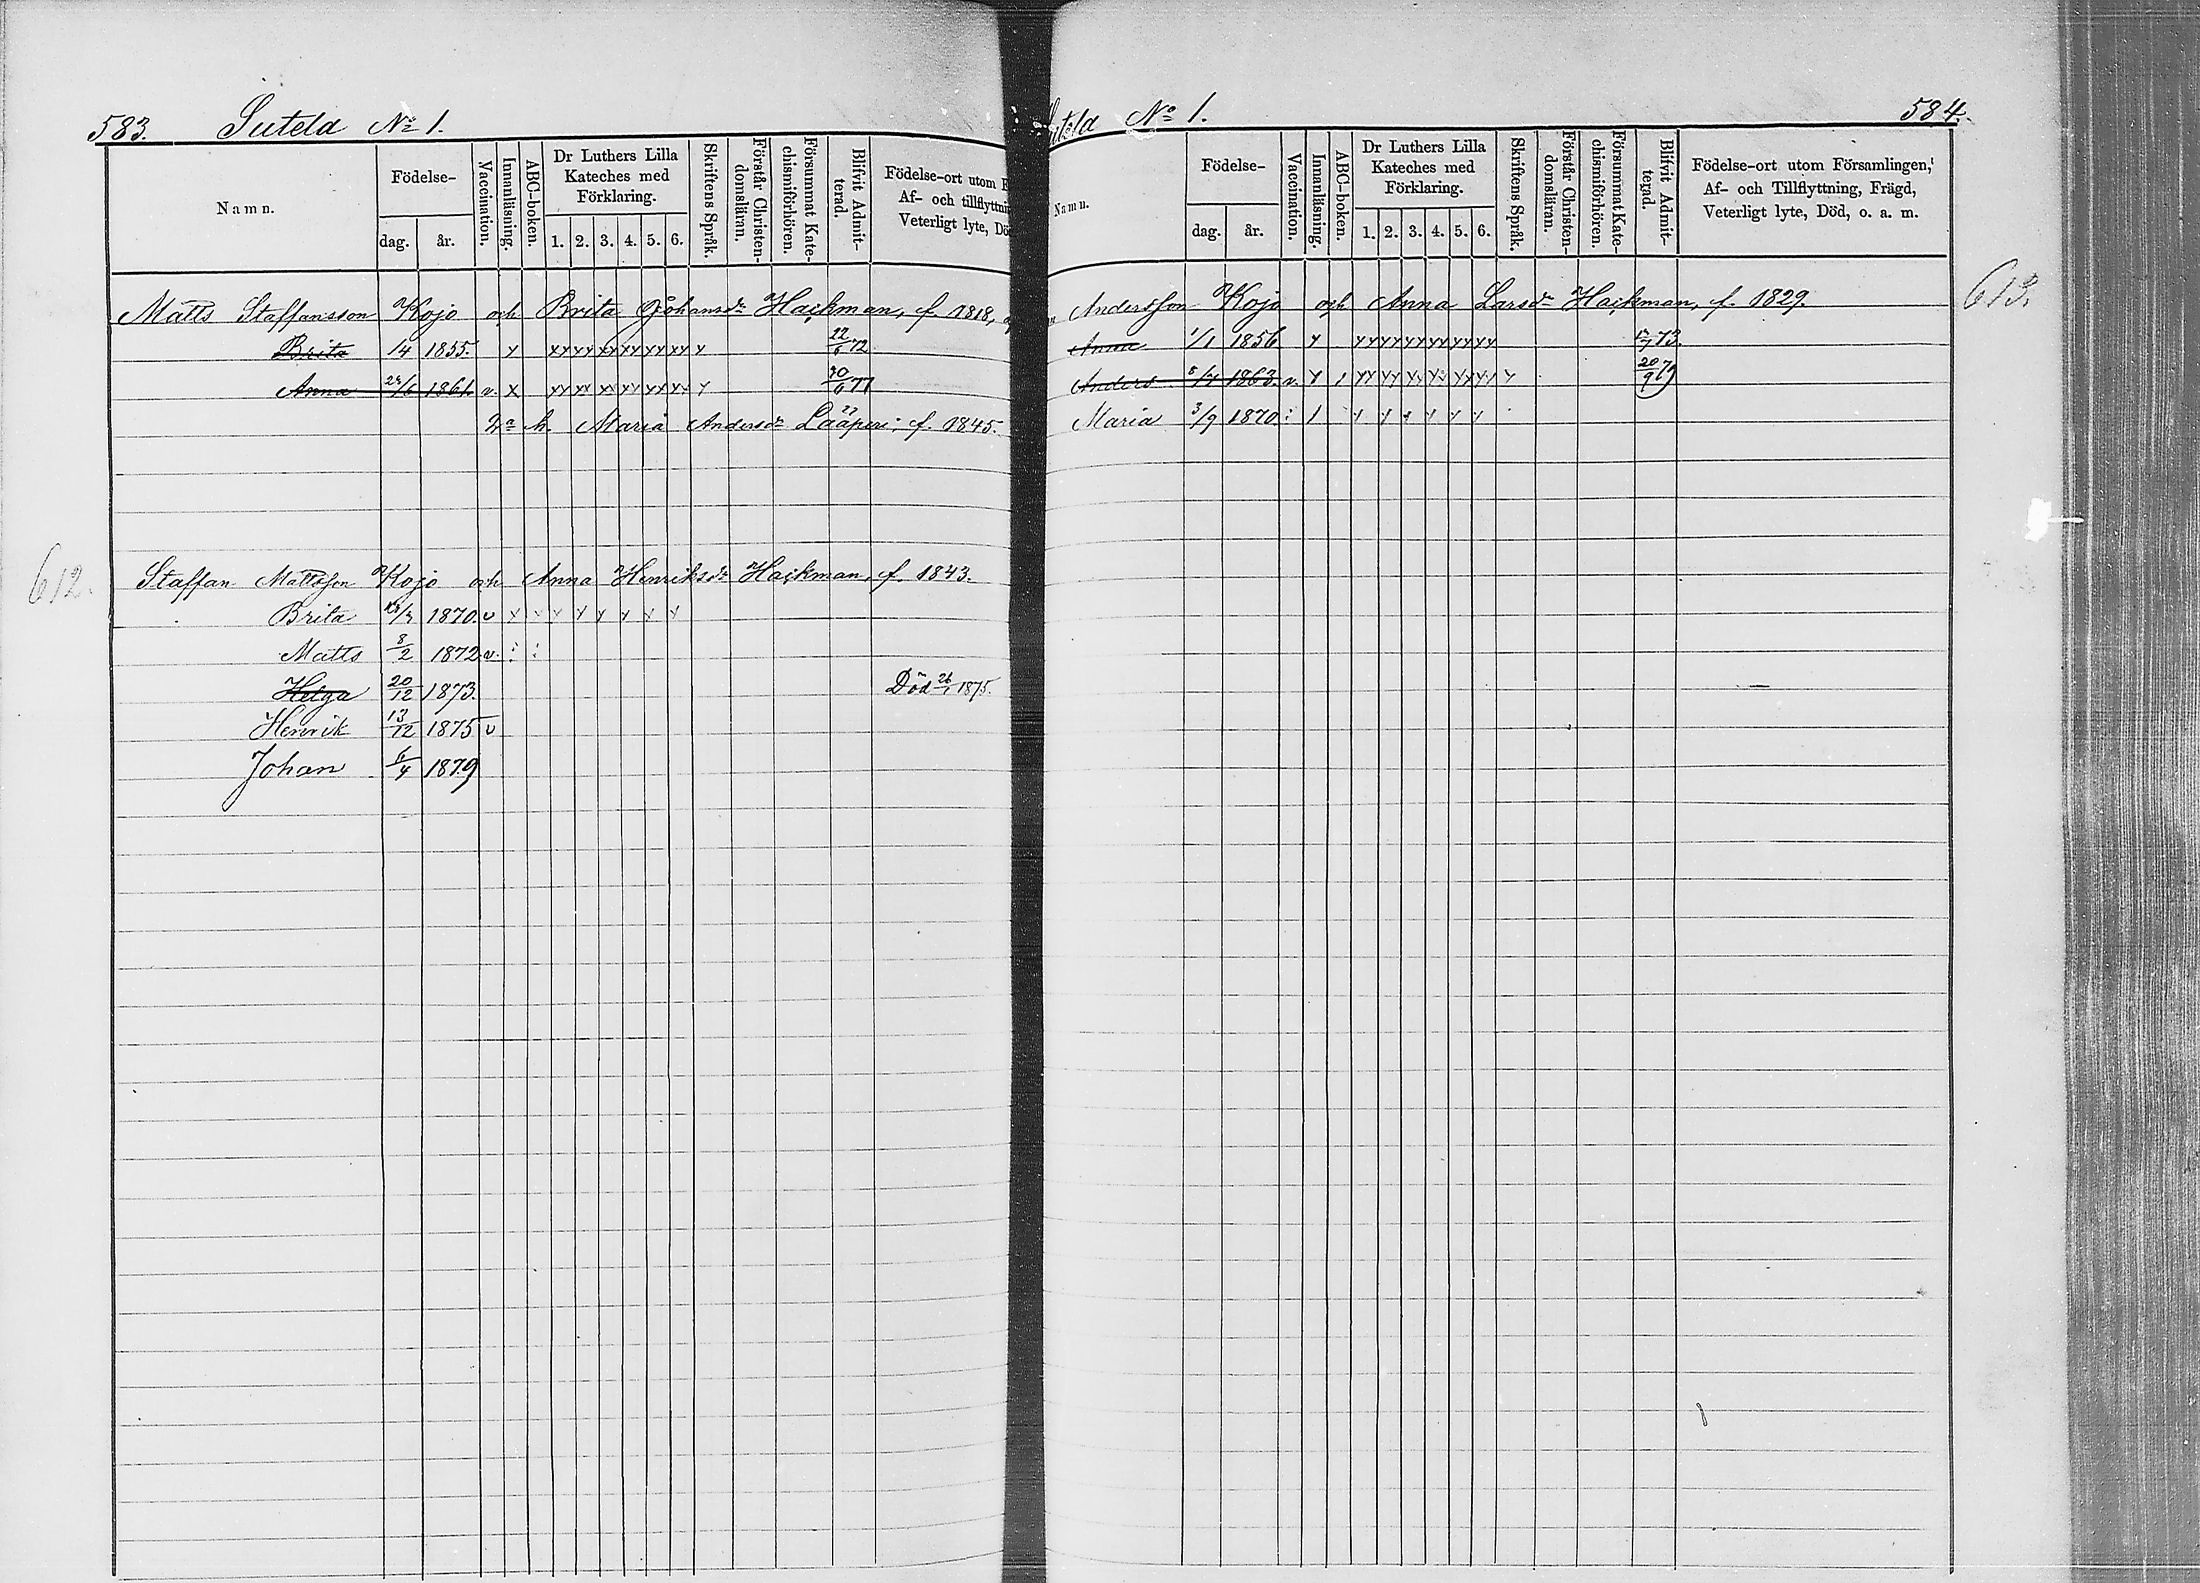 583. Sutela No 1.
Namn. Födelse- dag. år. Vaccination. Innanläsning. ABC-boken. Dr Luthers Lilla Kateches med Förklaring. 1. 2. 3. 4. 5. 6. Skriftens Språk. Förstår Christen-domsläran. Försummat Kate-chismiförhören. Blifvit Admit-terad. Födelse-ort utom Af- och tillflyttni Veterligt lyte, Dö
Matts Staffansson Kojo och Brita Johansdr Haikman, f. 1818,
Brita 14 1855. x xx xx xx xx xx xx x 22/6 72
Anna 24/6 1861. v. x xx xx xx xx xx xx x 20/6 77
2a h. Maria Andersdr Lääperi, f. 1845.
612. Staffan Mattsson Kojo och Anna Henriksdr Haikman, f. 1843.
Brita 1870. v x x x x x x x x
Matts 8/2 1872 v.
Helga 20/12 1873. Död 26/1 1875.
Henrik 13/12 1875 v
Johan 6/4 1879
Sutela No 1. 584.
Namn. Födelse- dag. år. Vaccination. Innanläsning. ABC-boken. Dr Luthers Lilla Kateches med Förklaring. 1. 2. 3. 4. 5. 6. Skriftens Språk. Förstår Christen-domsläran. Försummat Kate-chismiförhören. Blifvit Admit-terad. Födelse-ort utom Församlingen, Af- och Tillflyttning, Frägd, Veterligt lyte, Död, o. a. m.
Andersson Kojo och Anna Larsdr Haikman, f. 1829. 613.
Anna 1/1 1856 x xx xx xx xx xx xx 73.
Anders 5/7 1863. v. x 1 xx xx xx xx xx xx x 20/9 79
Maria 3/9 1870 1 x x x x x x